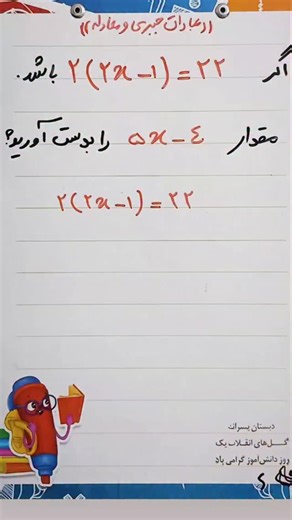 (عبارات جبری و معادله)
اگر ۲(۲x-۱)=۲۲ باشد.
مقدار ۵x-٤ را بدست آورید؟
۲(۲x-۱)=۲۲
دبستان پسرانه
گل‌های انقلاب یک
روز دانش‌آموز گرامی باد